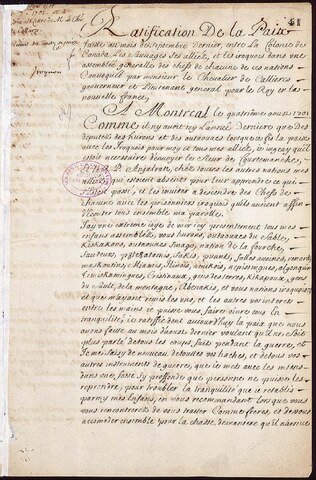 41
Ratification De la Paix
faite au mois de septembre dernier, entre la Colonie de
Canada, Les Sauvages ses alliez, et les iroquois dans une
assemblée generale des chefs de chacune de ces nations
Convoquée par monsieur le Chevalier de Callieres
gouverneur et Lieutenant general pour le Roy en la
nouvelle france,
A Montreal le quatriéme aoust 1701
Comme il n'y auoit icy l'année Derniere que des
deputez des hurons et des outaouacs lorsque ie fis la paix
avec les Iroquois pour moy et tous mes alliez, ie iugeay qu'il
estoit necessaire d'envoyer le sieur de Courtemanche,
et le R. P. Anjalran, chez toutes les autres nations mes
alliez qui estoient absents pour leur apprendre ce qui
s'estoit passé, et les inuiter a descendre des Chefs de
chacune avec les prisonniers iroquois qu'ils auoient affin
d'écouter tous ensemble ma parolle.
J'ay une extreme ioye de voir icy presentement tous mes
enfans assemblez, vous hurons, outaouacs du Sable,
Kiskakons, outaouacs Sinago, nation de la fourche,
Sauteurs, Sakis, puants, folles auoines, renards,
maskoutins, Miamis, Ilinois, amikois, nepissingues, algonquins
Temiskamingues, Cristinaux, gens des terres, Kikapoux, gens
du Sault, de la montagne, Abenakis, et vous nations iroquoises
et que m'ayant remis les uns et les autres vos interets
entre les mains ie puisse vous faire viure tous en
tranquilité; ie ratiffie donc aujourd'huy la paix que nous
avons faite au mois d'aoust dernier voulant qu'il ne soit
plus parlé de tous les coups faits pendant la guerre, et
Je me saisy de nouveau de toutes vos haches, et de tous vos
autres instruments de guerre, que ie mets avec les miens
dans une fosse sy profonde que personne ne puisse les
reprendre, pour troubler la tranquilité que ie retablis
parmy mes Enfans, en vous recommandant lorsque vous
vous rencontrerez de vous traiter Comme freres, et de vous
accomoder ensemble pour la chasse, de maniere qu'il n'arriue